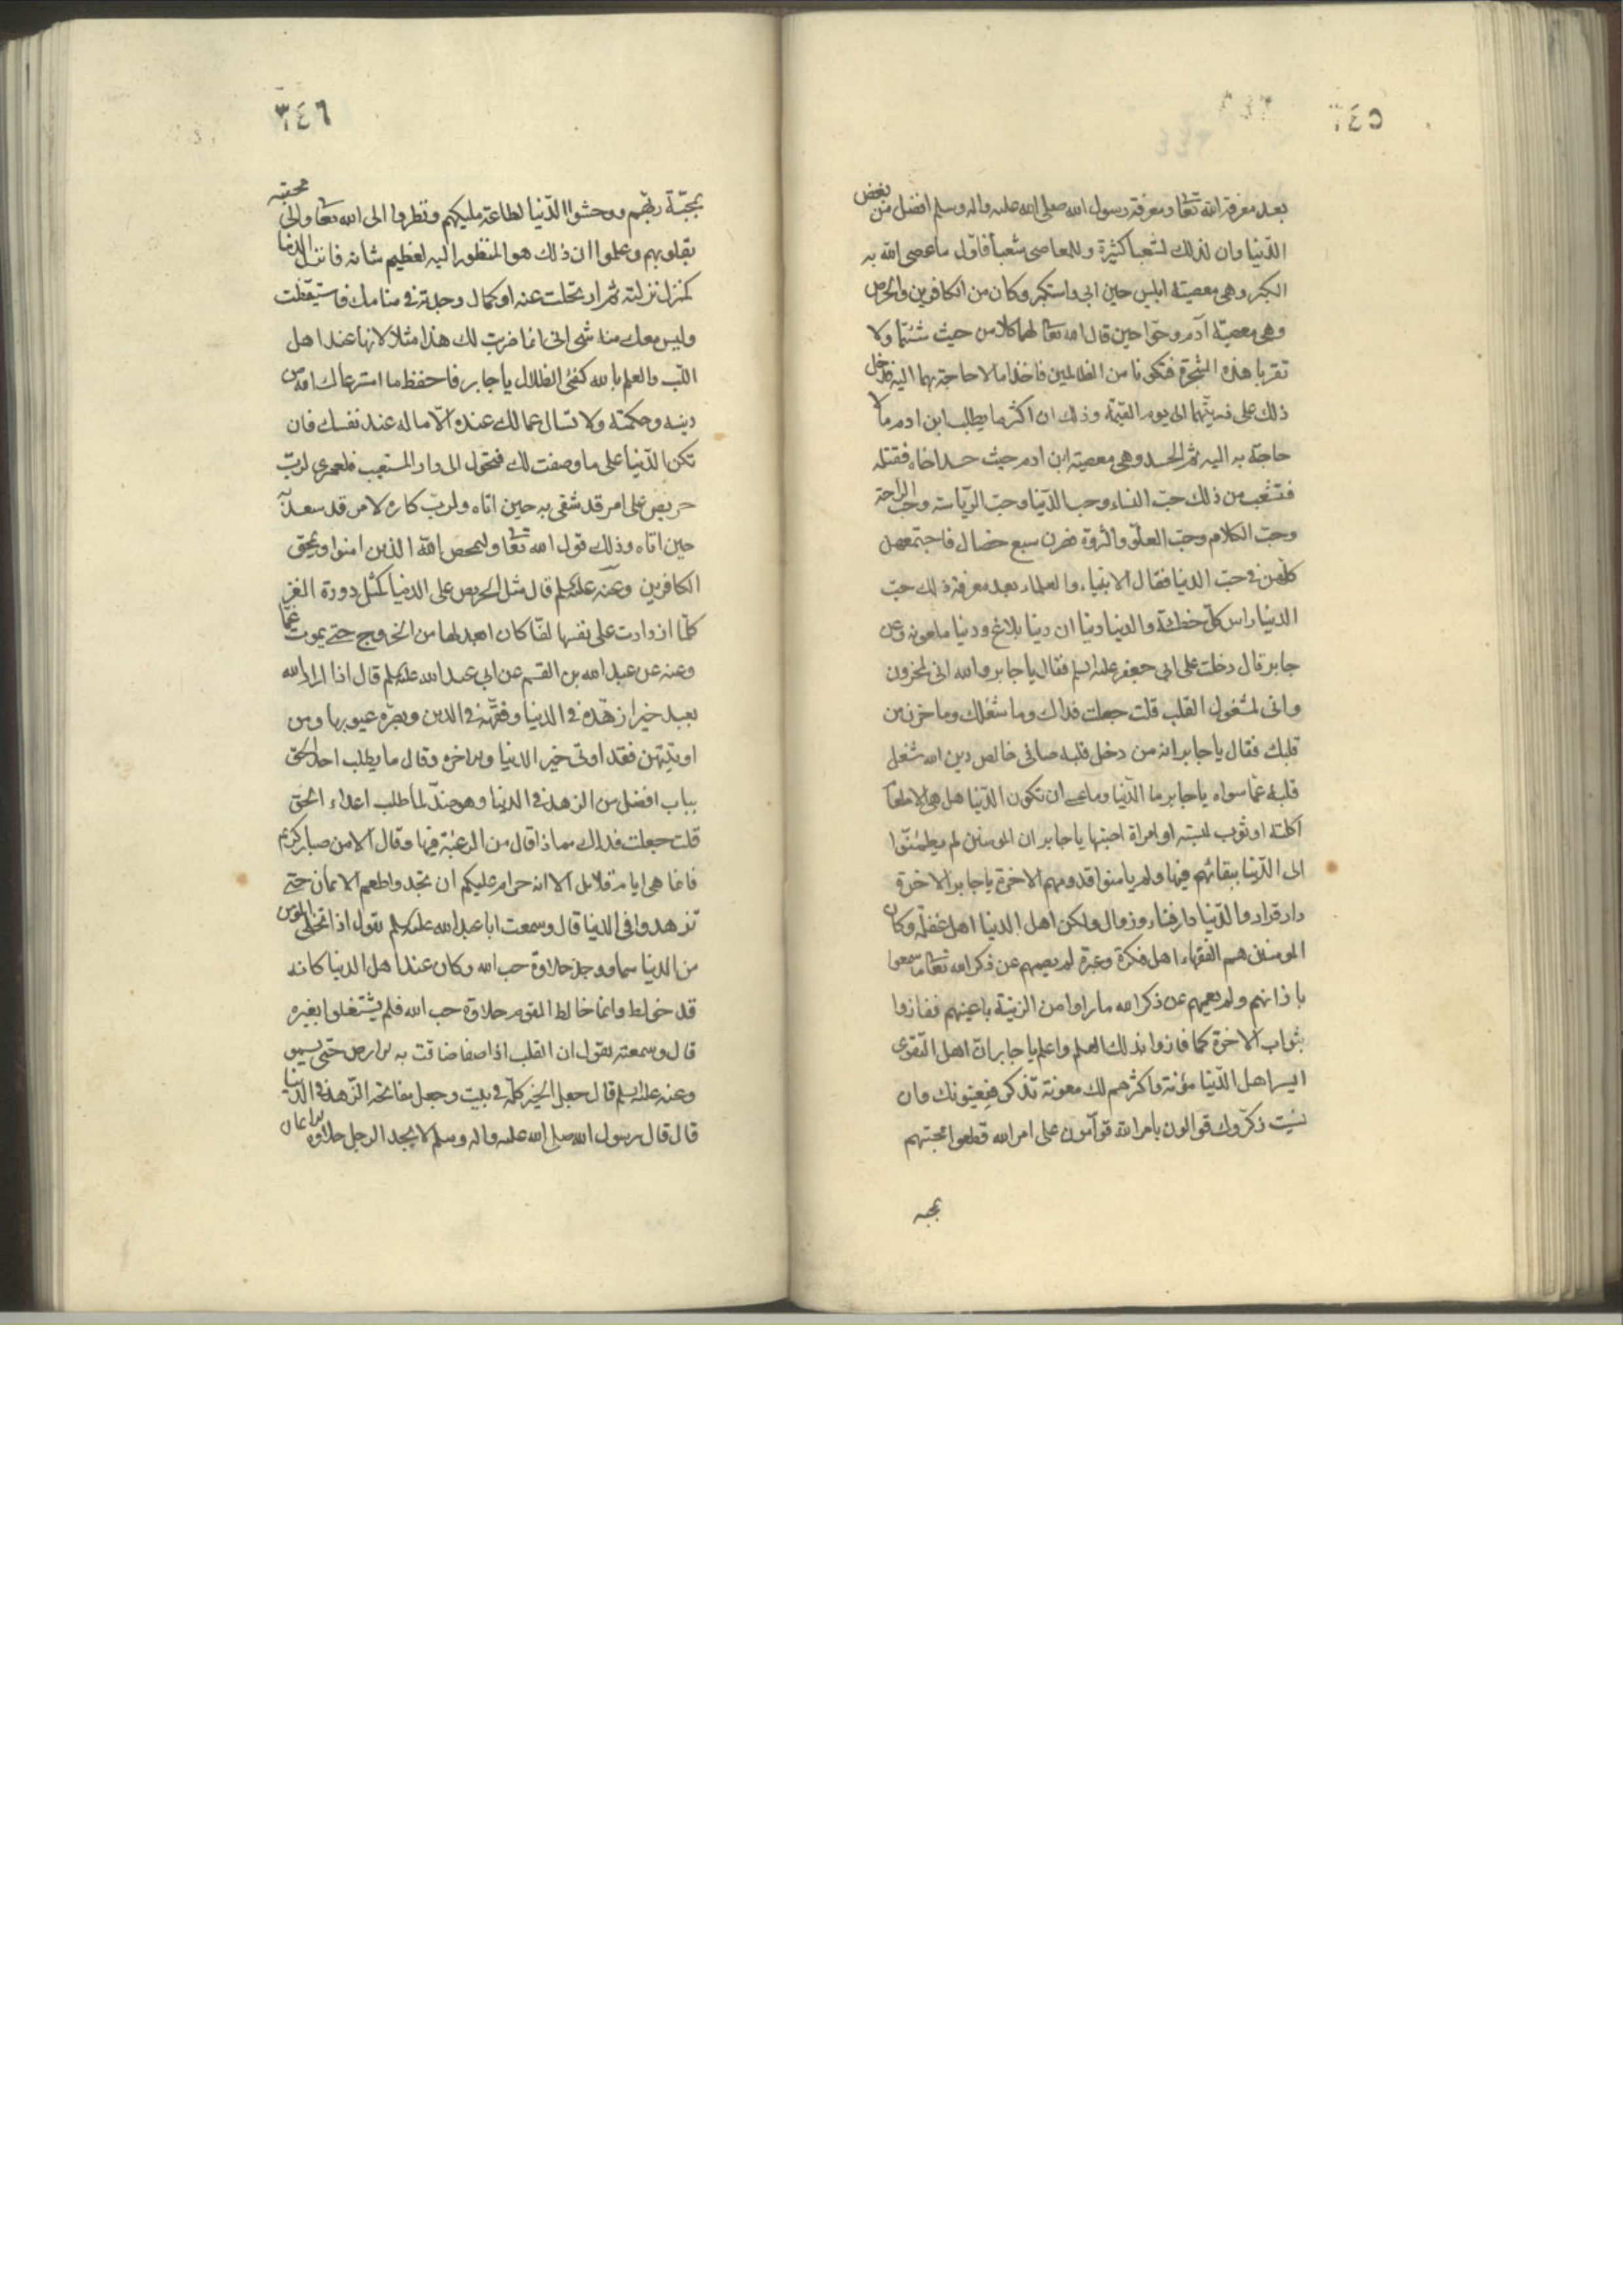 ٣٤٥
بعد معرفة الله تعا ومعرفة رسول الله صلى الله عليه واله وسلم افضل من بغض
الدّنيا وان لذلك لشعبا كثيرة وللمعاصي شعبا فاوّل ما عصى الله به
الكبر وهي معصية ابليس حين ابى واستكبر وكان من الكافرين والحرص
وهي معصية آدم وحوّا حين قال الله تعا لهما كلا من حيث شئتما ولا
تقربا هذه الشجرة فتكونا من الظالمين فاخذا ما لا حاجة بهما اليه فدخل
ذلك على ذريتهما الى يوم القيمة وذلك ان اكثر ما يطلب ابن ادم ما لا
حاجة به اليه ثم الحسد وهي معصية ابن ادم حيث حسد اخاه فقتله
فتشعب من ذلك حبّ النساء وحب الدّنيا وحبّ الرّياسة وحبّ الراحة
وحبّ الكلام وحبّ العلوّ والثروة فصرن سبع خصال فاجتمعهن
كلّهن في حبّ الدنيا فقال الانبياء والعلماء بعد معرفة ذلك حبّ
الدنيا راس كلّ خطيئة والدنيا دنيا ان دنيا بلاغ ودنيا ملعونة وعن
جابر قال دخلت على ابي جعفر عليه السلم فقال يا جابر والله اني لمحزون
واني لمشغول القلب قلت جعلت فداك وما شغلك وما حزن من
قلبك فقال يا جابر انه من دخل قلبه صافي خالص دين الله شغل
قلبه عمّا سواه يا جابر ما الدّنيا وما عسى ان تكون الدّنيا هل هي الا طعاما
اكلته او ثوب لبسته او امراة اصبتها يا جابر ان المومنين لم يطمئنّوا
الى الدّنيا ببقائهم فيها ولم يامنوا قدومهم الاخرة يا جابر الاخرة
دار قرار والدّنيا دار فناء وزوال ولكن اهل الدنيا اهل غفلة وكان
المومنين هم الفقهاء اهل فكرة وعبرة لم يصمهم عن ذكر الله تعا ما سمعوا
باذانهم ولم يعمهم عن ذكر الله ما راوا من الزينة باعينهم ففازوا
بثواب الاخرة كما فازوا بذلك العلم واعلم يا جابر انّ اهل التقوى
ايسر اهل الدّنيا مؤنة واكثرهم لك معونة تذكر فيعينونك وان
نسيت ذكّروك قوالون بامر الله قوّامون على امر الله قطعوا محبتهم
بمحبة
٣٤٦
بمحبّة ربّهم ووحشوا الدّنيا لطاعة مليكهم ونظروا الى الله تعا والى محبته
بقلوبهم وعلموا ان ذلك هو المنظور اليه لعظيم شانه فانزل الدنيا
كمنزل نزلته ثم ارتحلت عنه او كمال وجدته في منامك فاستيقظت
وليس معك منه شئ اني انما ضربت لك هذا مثلا لانها عند اهل
اللّب والعلم بالله كفئ الظلال يا جابر فاحفظ ما استرعاك الله من
دينه وحكمته ولا تسال عما لك عنده الّا ما له عند نفسك فان
تكن الدّنيا على ما وصفت لك فتحول الى دار المستعتب فلعمري لربّ
حريص على امر قد شقى به حين اتاه ولربّ كاره لامر قد سعد به
حين اتاه وذلك قول الله تعا وليمحص الله الذين امنوا ويمحق
الكافرين وعنه عليه السلم قال مثل الحريص على الدنيا كمثل دودة القز
كلّما ازدادت على نفسها لفّا كان ابعد لها من الخروج حتى يموت غمّا
وعنه عن عبد الله بن القسم عن ابي عبد الله عليه السلم قال اذا اراد الله
بعبد خيرا زهّده في الدنيا وفقّهه في الدين وبصّره عيوبها ومن
اوتيتهن فقد اوتى خير الدنيا والاخرة وقال ما يطلب احد الحق
بباب افضل من الزهد في الدنيا وهو ضدّ لما طلب اعداء الحق
قلت جعلت فداك مماذا قال من الرغبة فيها وقال الا من صبار كريم
فانما هي ايام قلائل الا انه حرام عليكم ان تجدوا طعم الايمان حتى
تزهدوا في الدنيا قال وسمعت ابا عبد الله عليه السلم يقول اذا تخلى المومن
من الدنيا سما ووجد حلاوة حب الله وكان عند اهل الدنيا كانه
قد خولط وانما خالط القوم حلاوة حب الله فلم يشتغلوا بغيره
قال وسمعته يقول ان القلب اذا صفا ضاقت به الارض حتى يسمو
وعنه عليه السلم قال جعل الخير كلّه في بيت وجعل مفاتحه الزّهد في الدّنيا
قال قال رسول الله صلى الله عليه واله وسلم لا يجد الرجل حلاوة الايمان